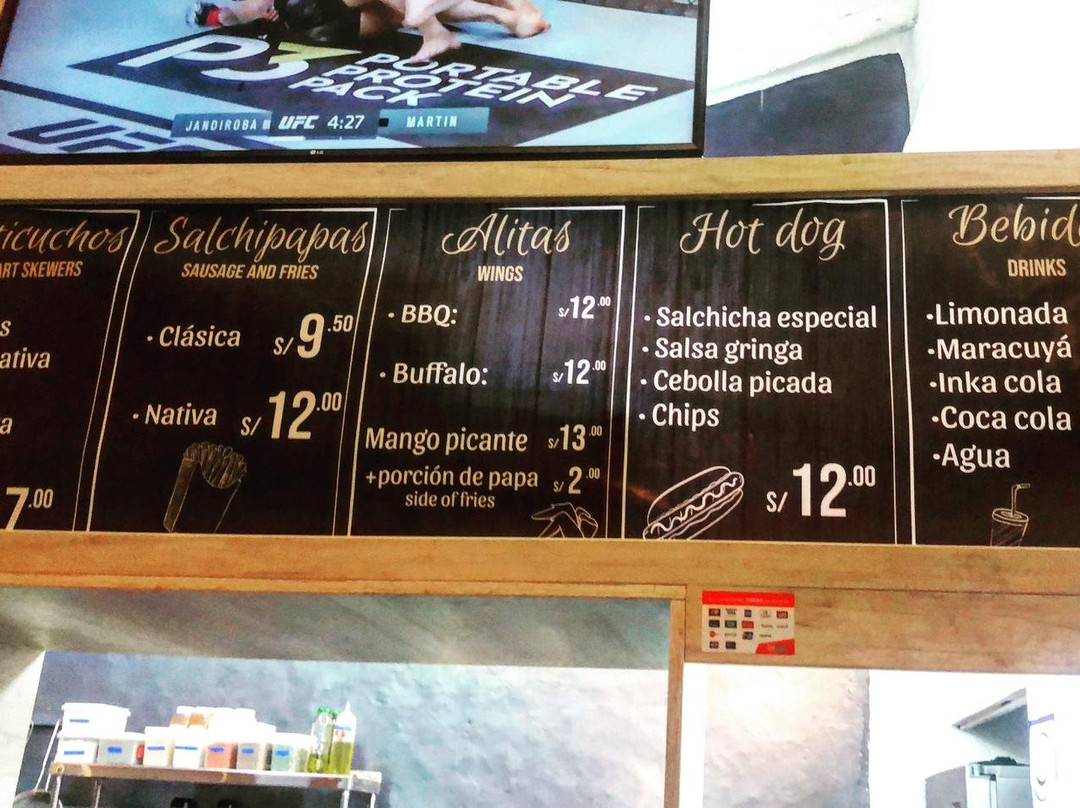 P3 PORTABLE
PROTEIN
PACK
JANDIROBA UFC 4:27 MARTIN
UFC
ticuchos
ART SKEWERS
s
ativa
a
7.00
Salchipapas
SAUSAGE AND FRIES
• Clásica S/ 9.50
• Nativa S/ 12.00
Alitas
WINGS
• BBQ: S/ 12.00
• Buffalo: S/ 12.00
Mango picante S/ 13.00
+porción de papa S/ 2.00
side of fries
Hot dog
• Salchicha especial
• Salsa gringa
• Cebolla picada
• Chips
S/ 12.00
Bebid
DRINKS
•Limonada
•Maracuyá
•Inka cola
•Coca cola
•Agua